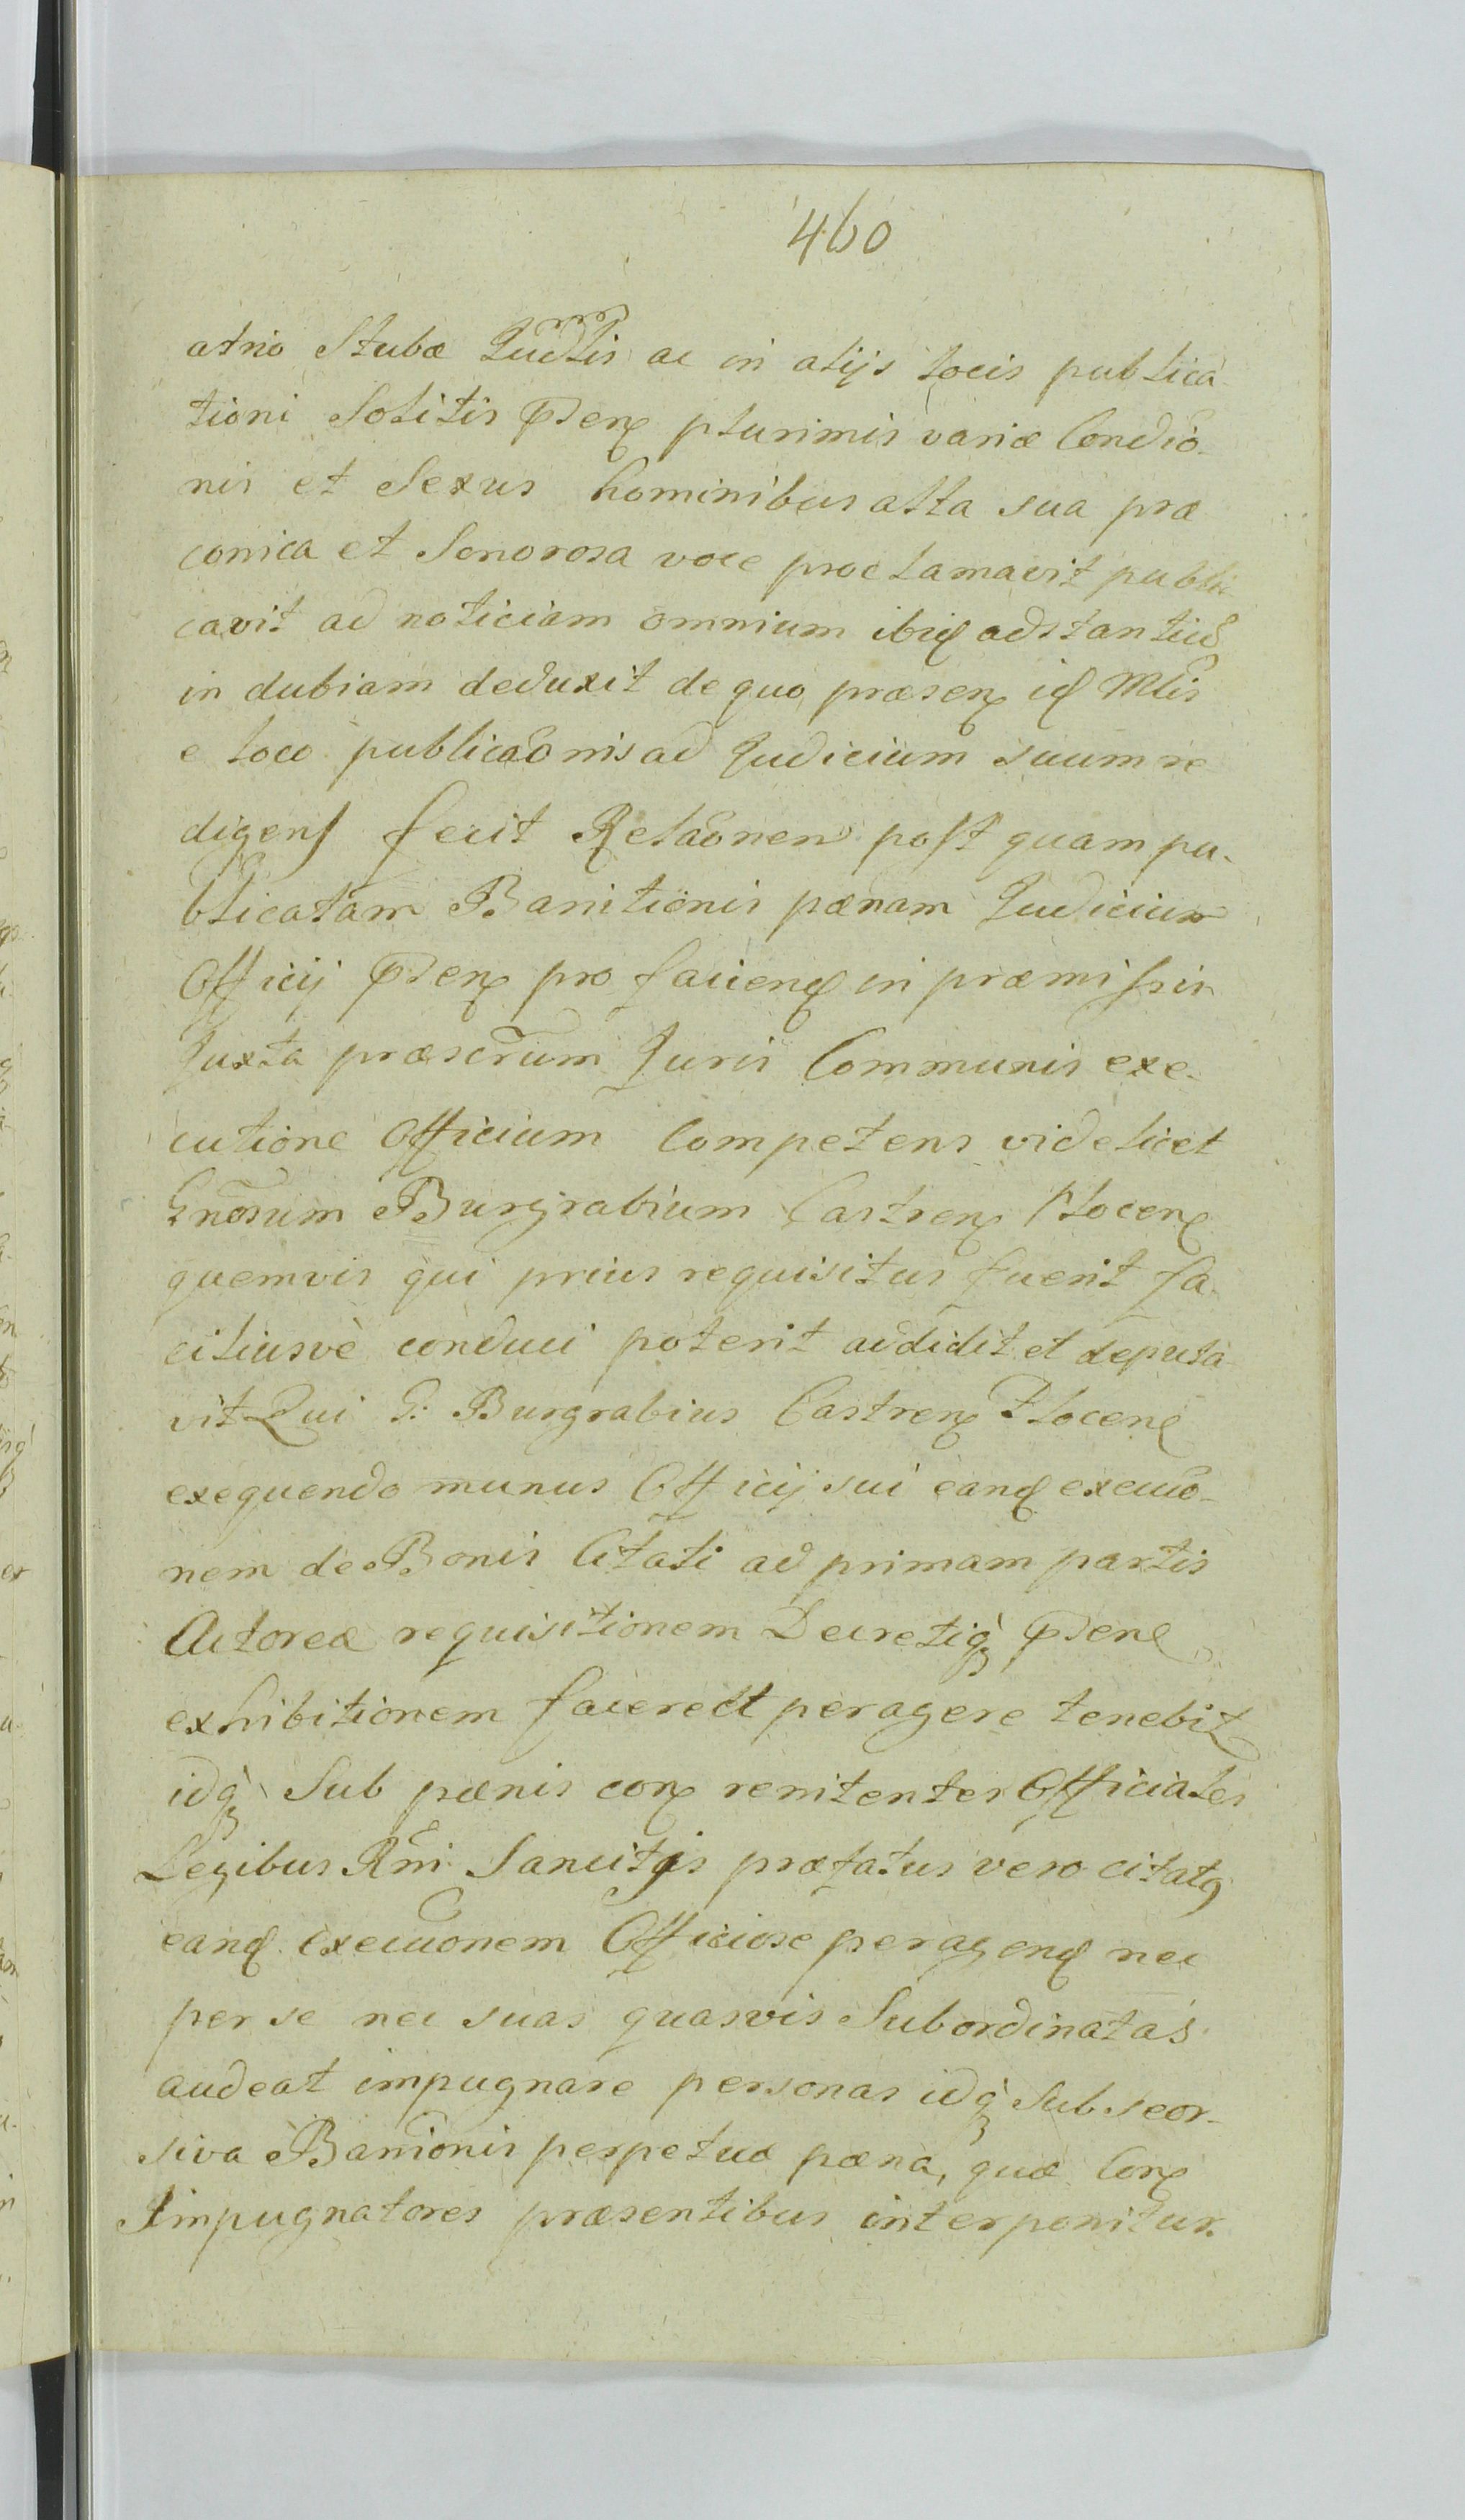 460
atrio Stubæ Judtis ac in alijs locis publica-
tioni Solitis Pten plurimis variæ Condio-
nis et Sexus hominibus alta sua præ
conica et Sonorosa voce proclamavit publi
cavit ad noticiam omnium ibiq adstantiu
in dubiam deduxit de quo præsen id Mlis
e loco publicaonis ad Judicium suum re
digens fecit Relaonem post quam pu-
blicatam Banitionis pænam Judicium
Officij Pten pro faciend in præmissis
Juxta præscrum Juris Communis exe-
cutione Officium Competens videlicet
Gnosum Burgrabium Castren Plocen
quemvis qui prius requisitus fuerit fa-
ciliusvè conduci poterit addidit et deputa
vit Qui G: Burgrabius Castren Plocen
exequendo munus Officij sui eand execuo-
nem de Bonis Citati ad primam partis
Actoreæ requisitionem Decretiq Pten
exhibitionem facere et peragere tenebit
idq Sub pænis con renitentes Officiales
Legibus Rni Sancitis præfatus vero citatq
eand execuonem Officiose peragend nec
per se nec suas quasvis Subordinatas
audeat impugnare personas idq Sub seor-
siva Banionis perpetuæ pæna, quæ Con
Impugnatores præsentibus interponitur.